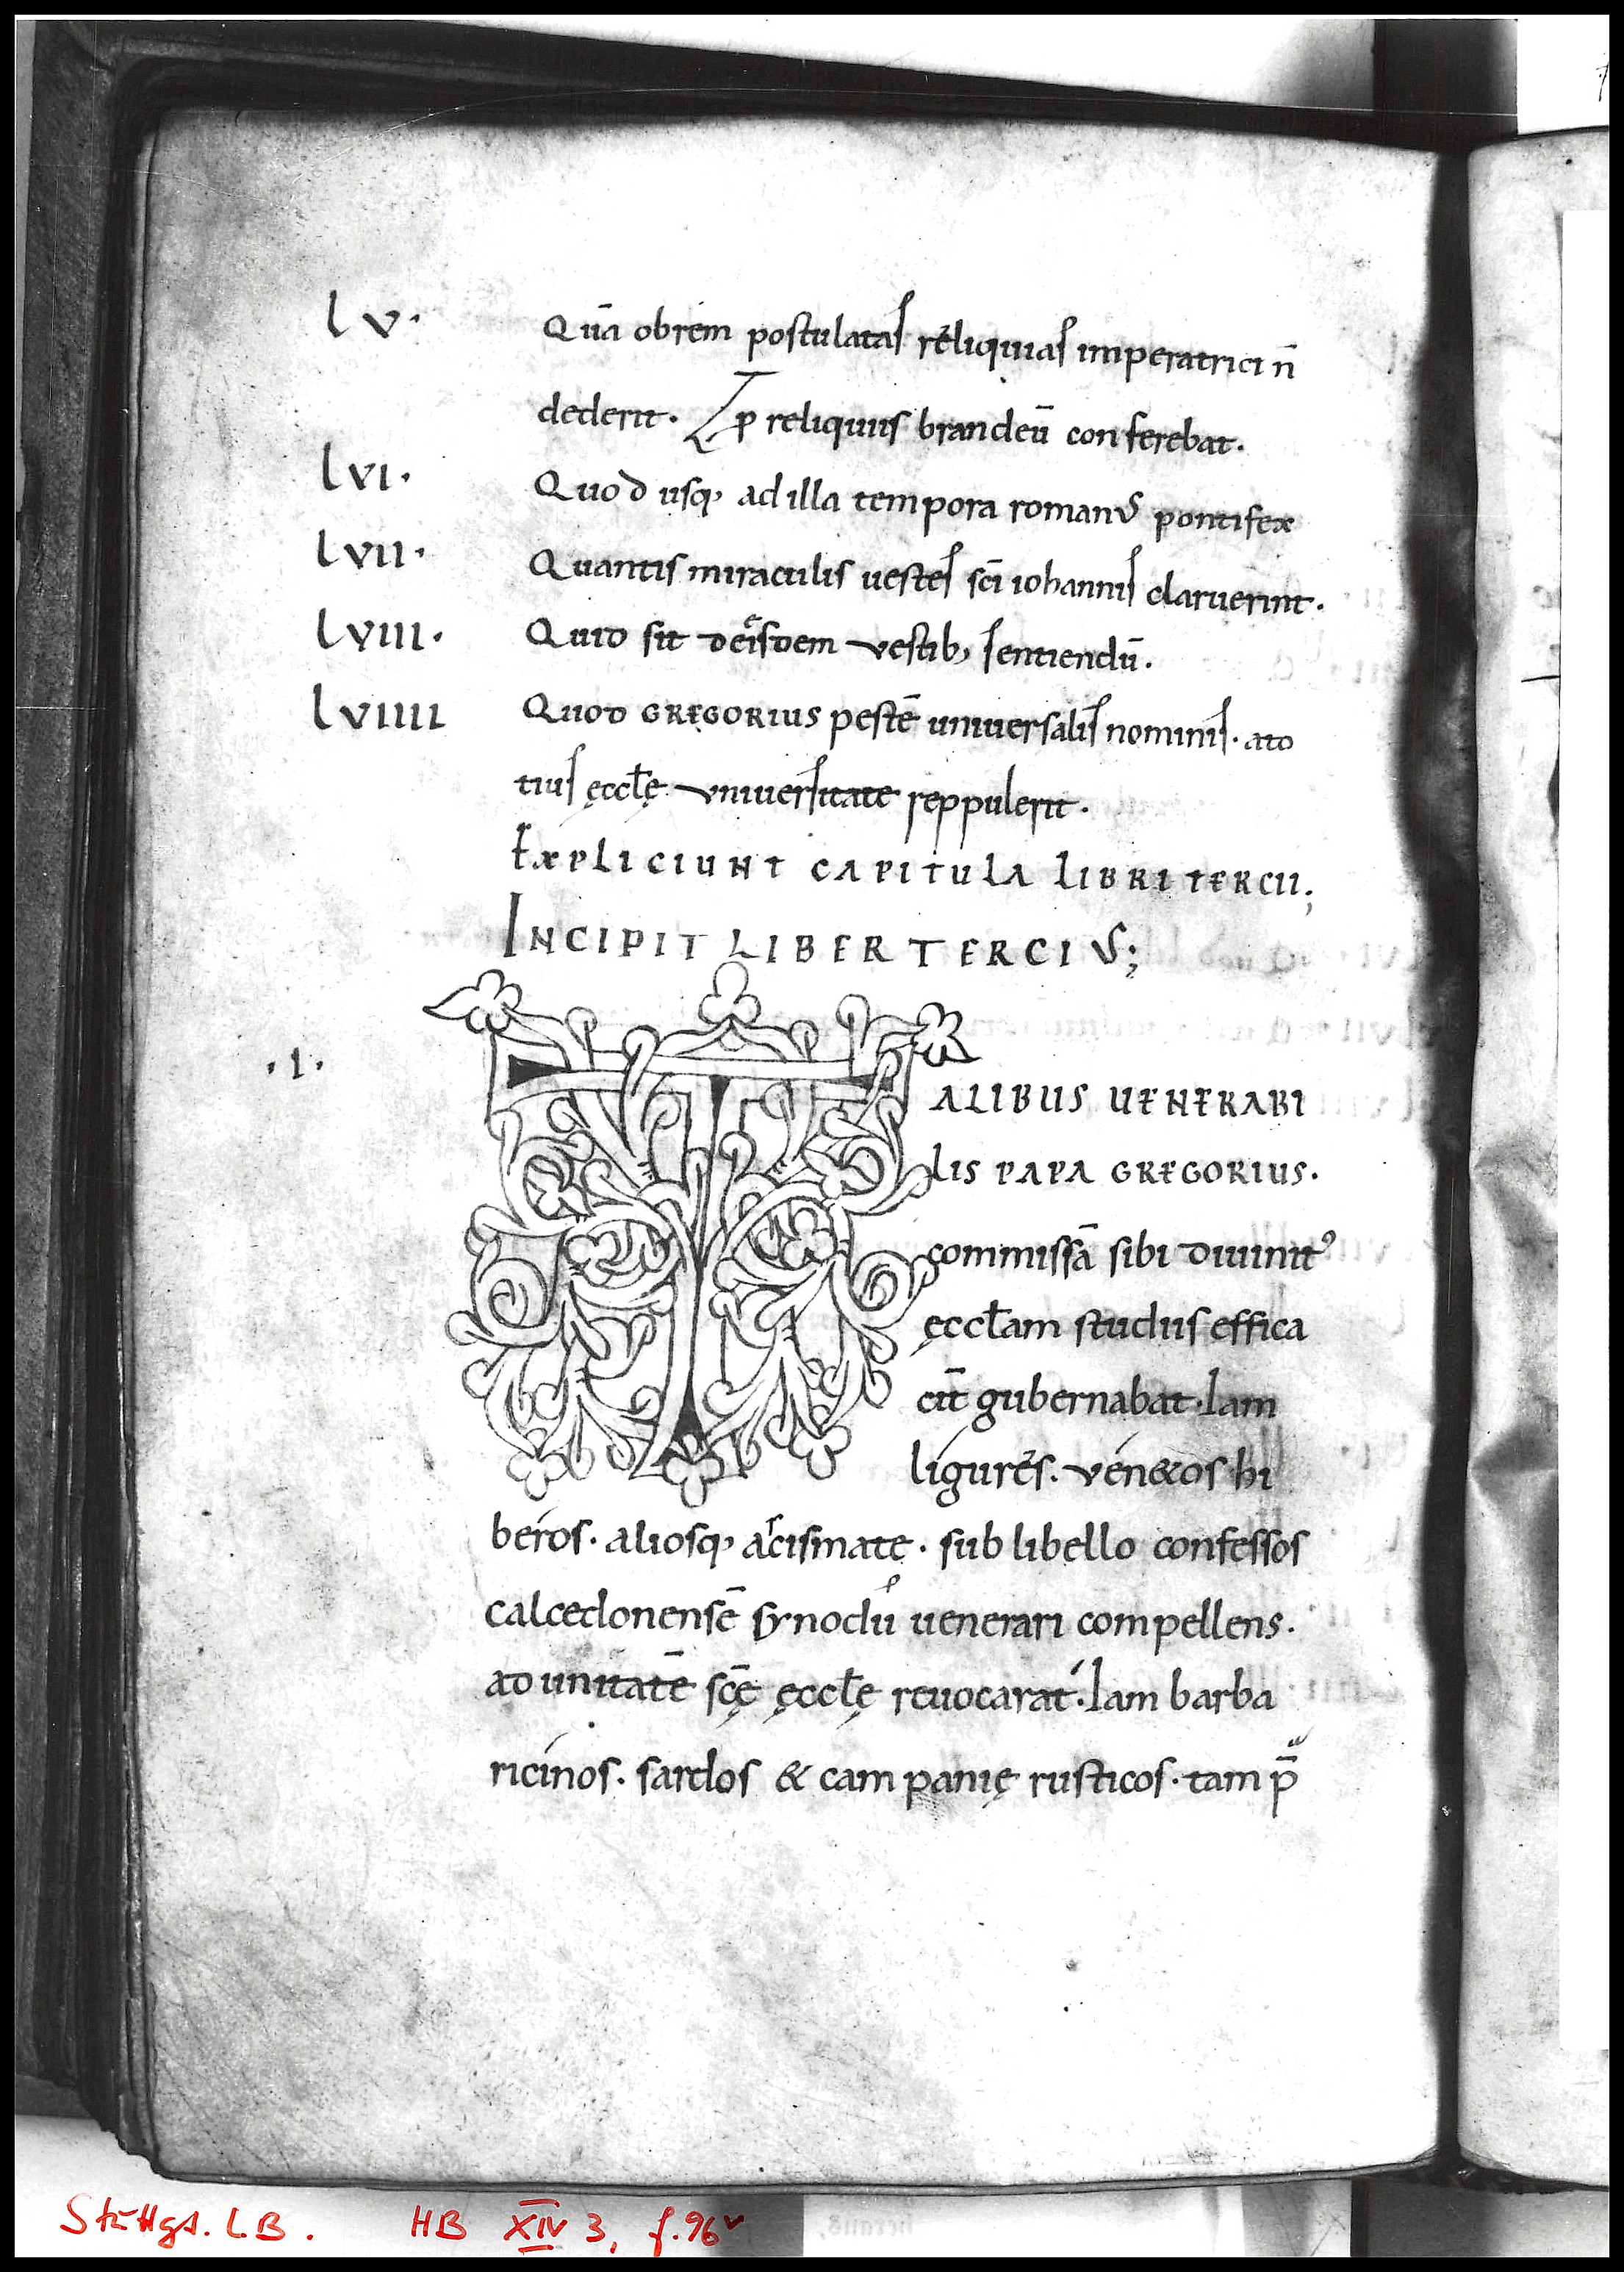 lv· Quā obrem postulatas reliquias imperatrici n̄
dederit· p reliquiis brandeū conferebat·
lvi· Quod usq, ad illa tempora romanus pontifex
lvii· Quantis miraculis uestes sc̄i iohannis claruerint·
lviii· Quid sit deisdem vestib, sentiendū·
lviiii Quod GREGORIUS pestē uniuersalis nominis· ato
tius ęccłę vniuersitate reppulerit·
EXPLICIUNT CAPITULA LIBRI TERCII;
INCIPIT LIBER TERCIUS;
·I· TALIBUS UENERABI
LIS PAPA GREGORIUS·
commissā sibi diuinit᾽
ęccłam studiis effica
cit̄ gubernabat· Iam
ligures· venetos hi
beros· aliosq, ascismate· sub libello confessos
calcedonensē synodū uenerari compellens·
ad unitatē sc̄ę ęccłę reuocarat· Iam barba
ricinos· sardos & campanię rusticos· tam p̄
Stuttgt. LB. HB XIV 3, f. 96v